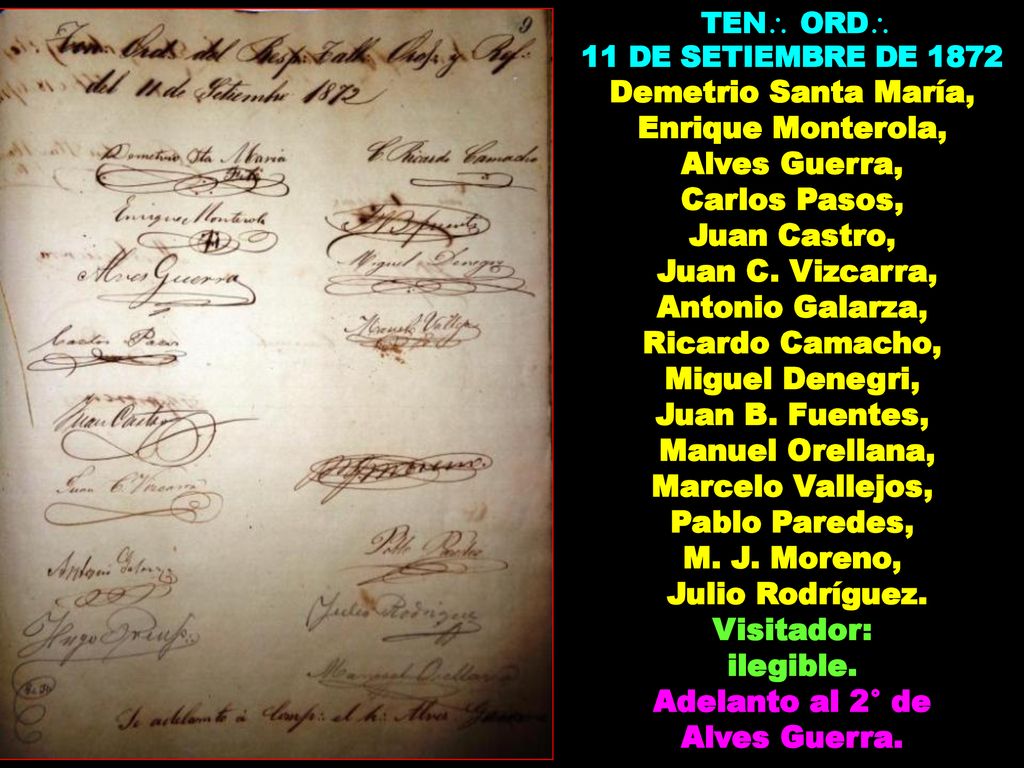 9
Ten∴ Ord∴ del Resp∴ Tall∴ y Ref∴
del 11 de Setiembre 1872
Demetrio Sta Maria
C. Ricardo Camacho
Enrique Monterola
J B Fuentes
Alves Guerra
Miguel Denegri
Carlos Pasos
Vallejos
Juan Castro
Juan C. Vizcarra
Antonio Galarza
Pablo Paredes
Hugo
Julio Rodriguez
Manuel Orellana
Se adelanto á Comp∴ el h∴ Alves Guerra
TEN∴ ORD∴
11 DE SETIEMBRE DE 1872
Demetrio Santa María,
Enrique Monterola,
Alves Guerra,
Carlos Pasos,
Juan Castro,
Juan C. Vizcarra,
Antonio Galarza,
Ricardo Camacho,
Miguel Denegri,
Juan B. Fuentes,
Manuel Orellana,
Marcelo Vallejos,
Pablo Paredes,
M. J. Moreno,
Julio Rodríguez.
Visitador:
ilegible.
Adelanto al 2° de
Alves Guerra.